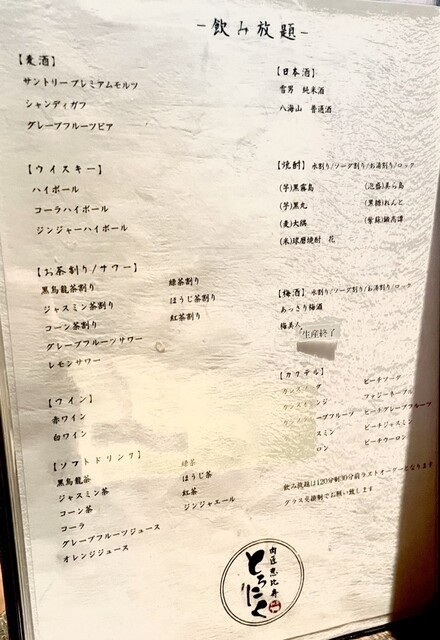 -飲み放題-
【麦酒】
サントリープレミアムモルツ
シャンディガフ
グレープフルーツビア
【ウイスキー】
ハイボール
コーラハイボール
ジンジャーハイボール
【お茶割り/サワー】
黒烏龍茶割り
ジャスミン茶割り
コーン茶割り
グレープフルーツサワー
レモンサワー
緑茶割り
ほうじ茶割り
紅茶割り
【ワイン】
赤ワイン
白ワイン
【ソフトドリンク】
黒烏龍茶
ジャスミン茶
コーン茶
コーラ
グレープフルーツジュース
オレンジジュース
緑茶
ほうじ茶
紅茶
ジンジャエール
【日本酒】
雪男 純米酒
八海山 普通酒
【焼酎】 水割り/ソーダ割り/お湯割り/ロック
(芋)黒霧島
(芋)黒丸
(麦)大隅
(米)球磨焼酎 花
(泡盛)美ら島
(黒糖)れんと
(紫蘇)鍛高譚
【梅酒】 水割り/ソーダ割り/お湯割り/ロック
あっさり梅酒
梅美人
生産終了
【カクテル】
カシス
カシス ンジ
ープフルーツ
スミン
ロン
ピーチソーダ
ファジーネーブル
ピーチグレープフルーツ
ピーチジャスミン
ピーチウーロン
飲み放題は120分制30分前ラストオーダーとなります
グラス交換制でお願い致します
肉匠恵比寿
とろにく